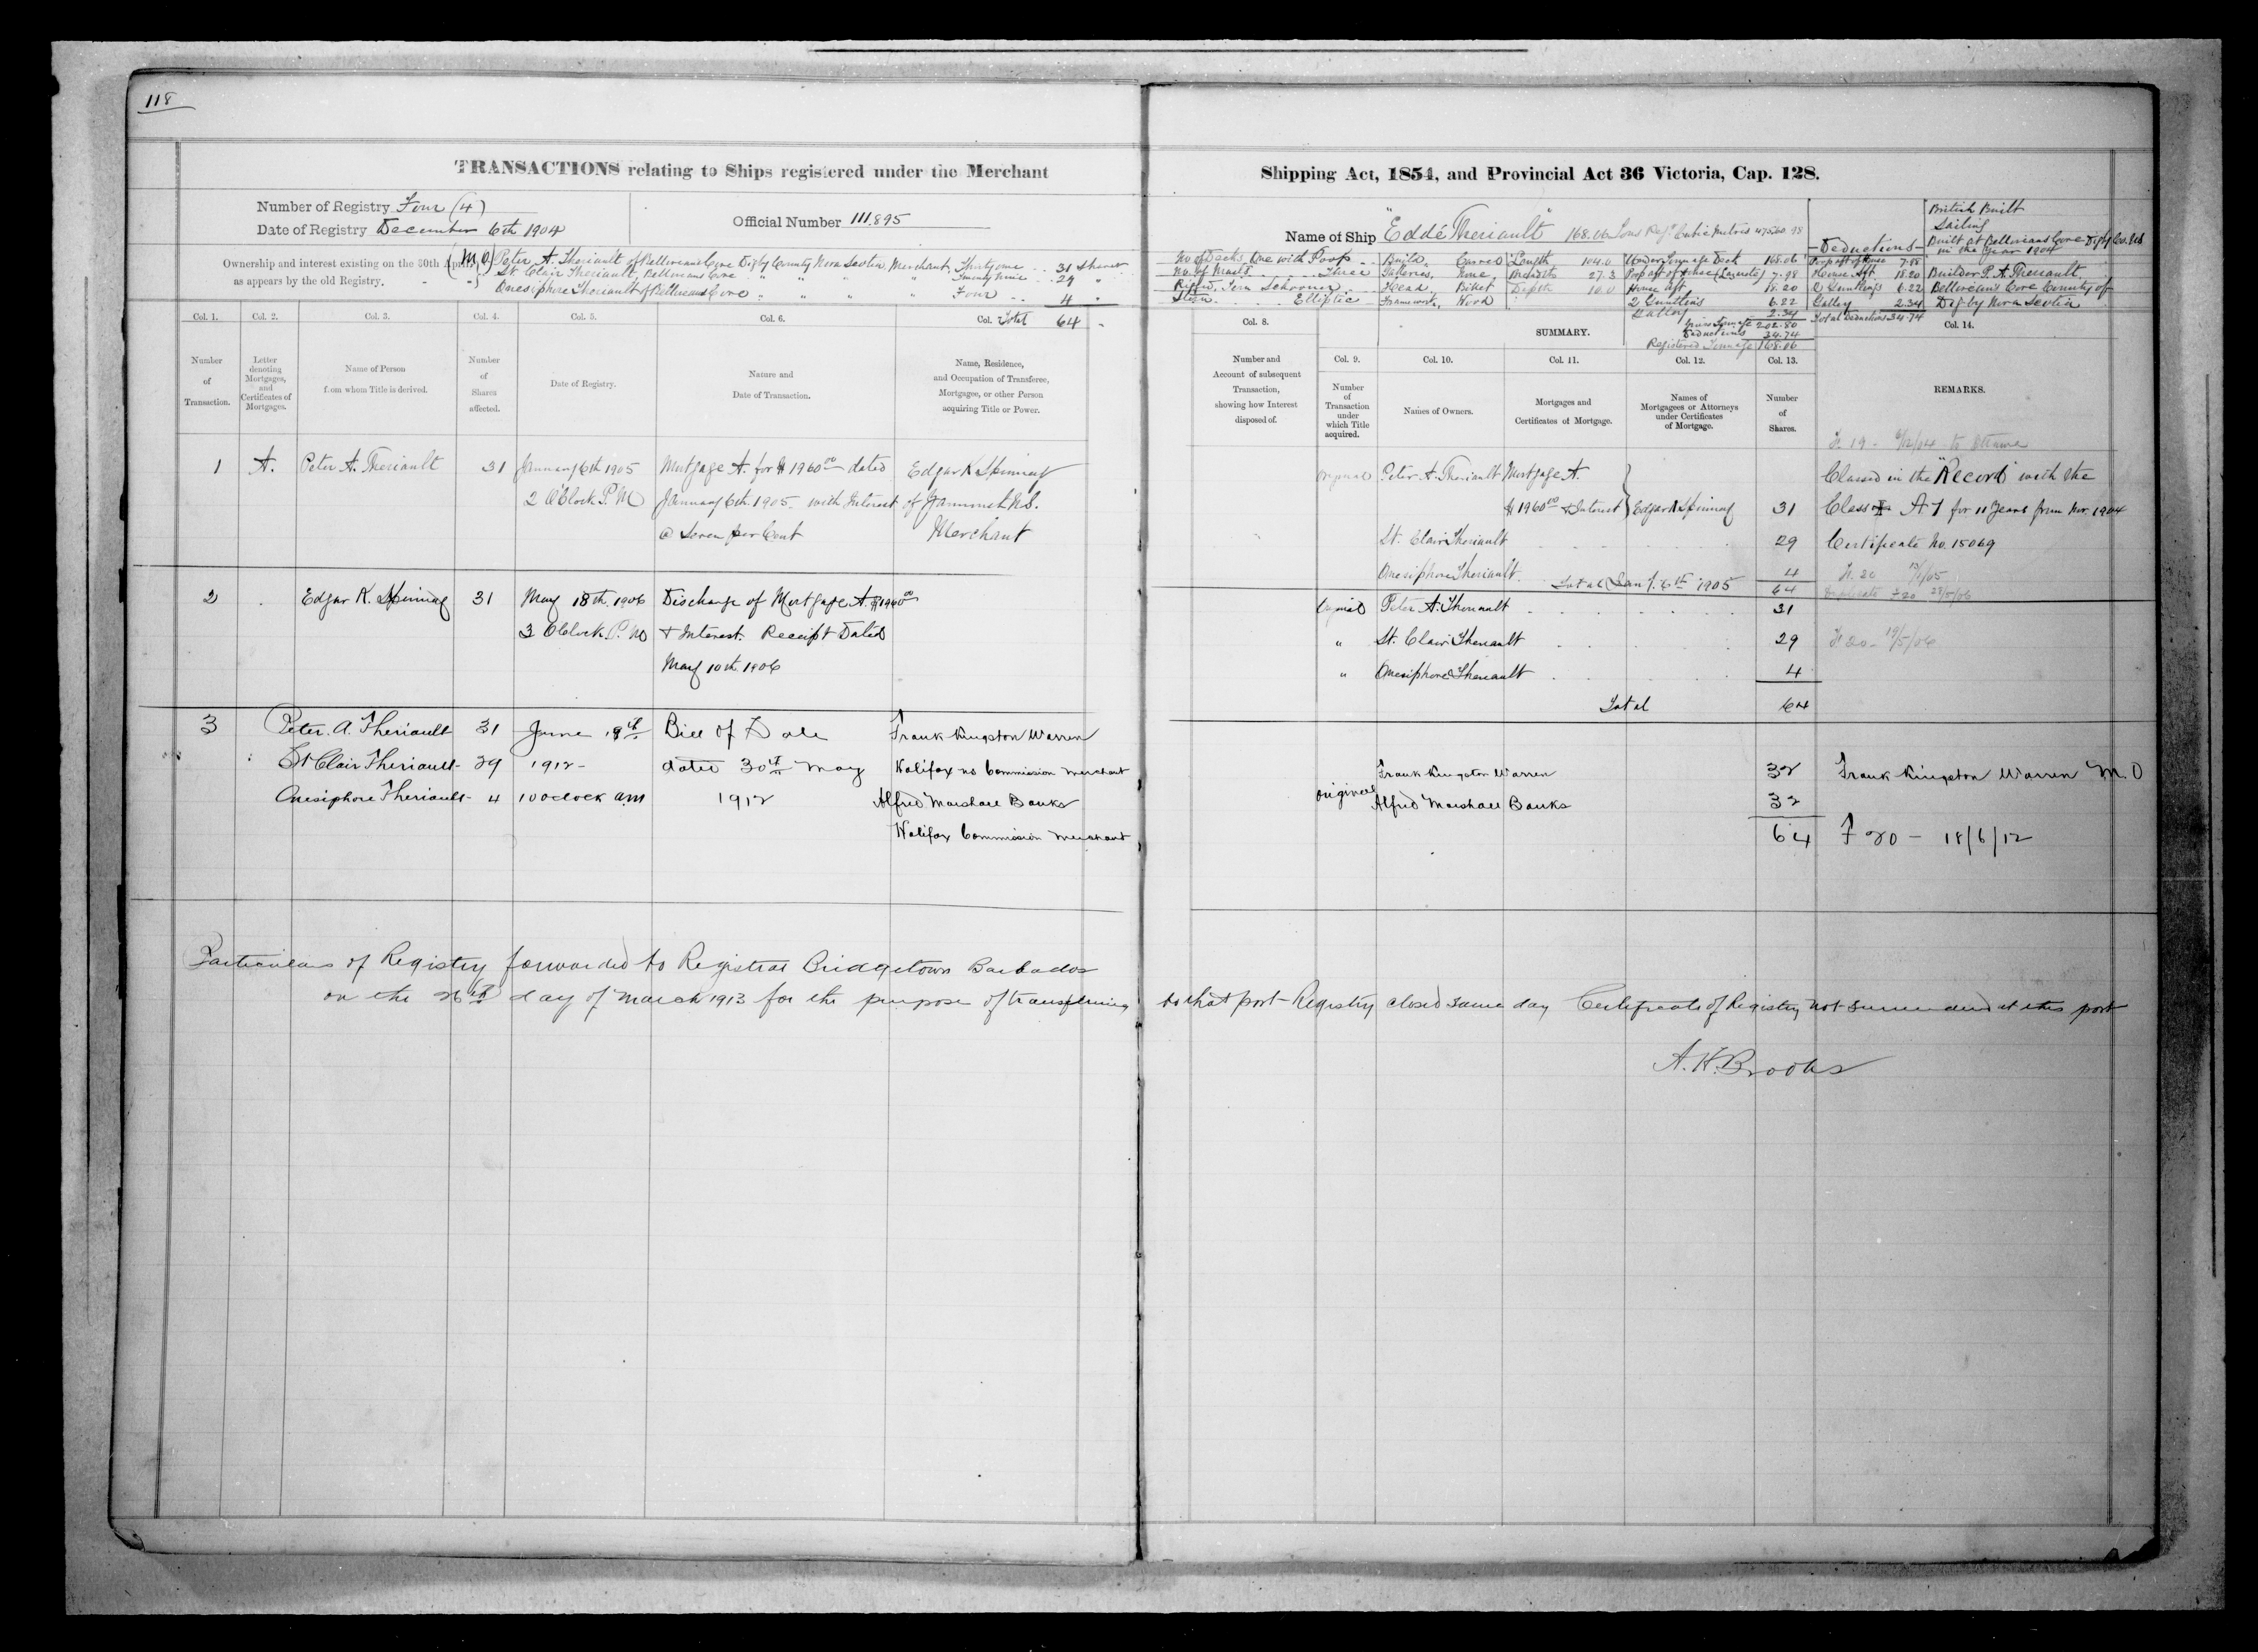 118
TRANSACTIONS relating to Ships registered under the Merchant
Shipping Act, 1854, and Provincial Act 36 Victoria, Cap. 128.
Number of Registry Four (4)
Date of Registry December 6th 1904
Official Number 111,895
Ownership and interest existing on the 30th April
as appears by the old Registry.
(M.O) Peter A. Theriault of Belliveaus Cove Digby County Nova Scotia Merchant, Thirty one 31 Shares
St. Clair Theriault, Belliveaus Cove " " " " Twenty Nine 29 "
Onesiphore Theriault of Belliveaus Cove " " " " Four 4 "
Total 64
Name of Ship "Eddé Theriault" 168.06 Tons Reg.
No of Decks, One with Poop
No. of Masts Three
Rigged, Tern Schooner
Stern Elliptic
Build, Carvel
Galleries, None
Head, Billet
Framework, Wood
Length 104.0
Breadth 27.3
Depth 10.0
Under Tonnage Deck 168.06
Poop aft of House 7.98
House Aft 18.20
6.22
Galley 2.34
Gross Tonnage 202.80
Deductions 34.74
Registered Tonnage 168.06
Deductions
Poop aft of House 7.98
House Aft 18.20
6.22
Galley 2.34
Total Deductions 34.74
British Built
Sailing
Built at Belliveaus Cove Digby Co. N.S
in the Year 1904
Builder P. A. Theriault
Belliveau's Cove County of
Digby Nova Scotia
Col. 1.
Number
of
Transaction.
Col. 2.
Letter
denoting
Mortgages,
and
Certificates of
Mortgages.
Col. 3.
Name of Person
from whom Title is derived.
Col. 4.
Number
of
Shares
affected.
Col. 5.
Date of Registry.
Col. 6.
Nature and
Date of Transaction.
Col.
Name, Residence,
and Occupation of Transferee,
Mortgagee, or other Person
acquiring Title or Power.
Col. 8.
Number and
Account of subsequent
Transaction,
showing how Interest
disposed of.
SUMMARY.
Col. 9.
Number
of
Transaction
under
which Title
acquired.
Col. 10.
Names of Owners.
Col. 11.
Mortgages and
Certificates of Mortgage.
Col. 12.
Names of
Mortgagees or Attorneys
under Certificates
of Mortgage.
Col. 13.
Number
of
Shares.
Col. 14.
REMARKS.
1 A. Peter A. Theriault 31 January 6th 1905 Mortgage A. for $1960.00 dated Edgar K. Spinney
2 O'Clock P.M January 6th 1905 with Interest of Yarmouth N.S.
@ Seven per Cent Merchant
Original Peter A. Theriault Mortgage A
$1960.00 & Interest Edgar K Spinney 31
St. Clair Theriault 29
Onesiphore Theriault 4
Total Jany. 6th 1905 64
F. 19 - 6/12/04 to Ottawa
Classed in the "Record" with the
Class A 1 for 11 Years from Nov. 1904
Certificate No. 15069
Duplicate F 20
2 Edgar K. Spinney 31 May 18th 1906 Discharge of Mortgage A. $1960.00
3 OClock P.M & Interest. Receipt Dated
May 10th 1906
Original Peter A. Theriault 31
" St. Clair Theriault 29
" Onesiphore Theriault 4
Total 64
F 20 - 19/5/06
3 Peter. A. Theriault 31 June 18th Bill of Sale Frank Kingston Warren
St Clair Theriault 29 1912 dated 30th May Halifax NS Commission Merchant
Onesiphore Theriault 4 10 oclock am 1912 Alfred Marshall Banks
Halifax Commission Merchant
Original Frank Kingston Warren 32
Alfred Marshall Banks 32
64
Frank Kingston Warren M.O
F 20 - 18/6/12
Particulars of Registry forwarded to Registrar Bridgetown Barbados
on the 26th day of March 1913 for the purpose of transferring to that port - Registry closed same day Certificate of Registry not surrendered at this port
A. H. Brooks